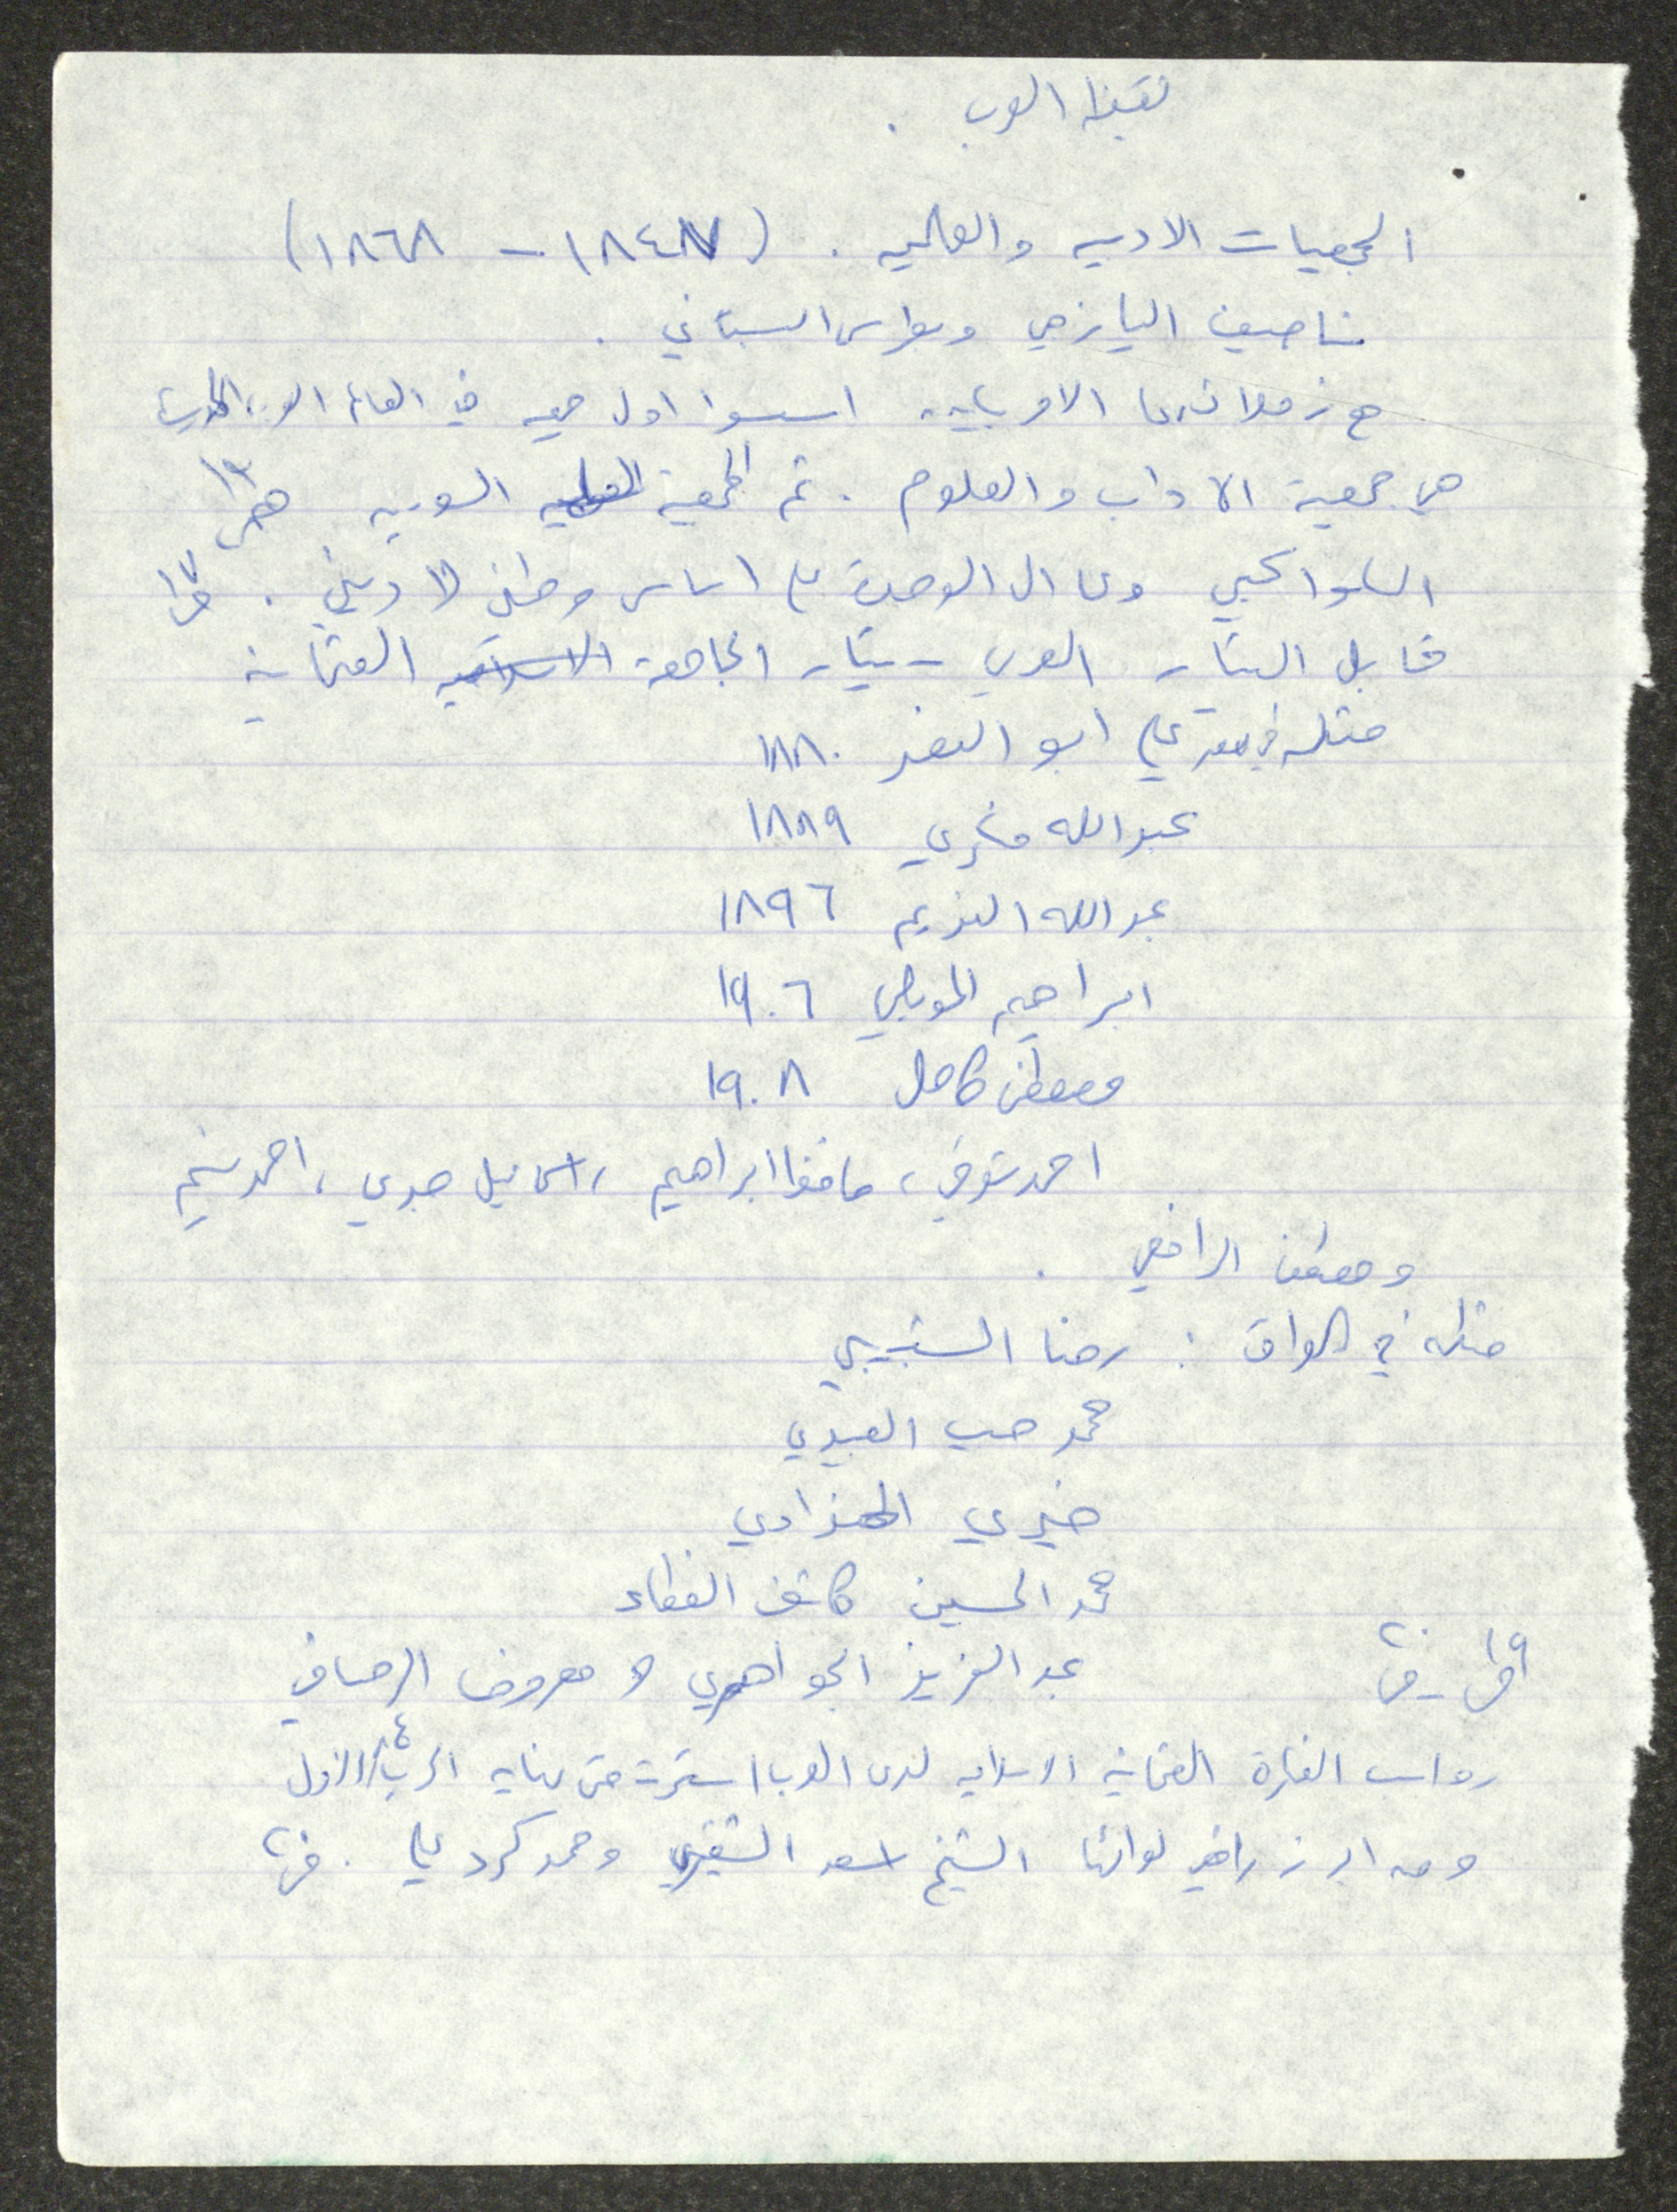 يقظة العرب .
الجمعيات الادبيه والعلميه . (١٨٤٧ - ١٨٦٨)
ناصيف اليازجي وبطرس البستاني .
مع زملائهما اسسوا اول جمعيه في العالم
هي جمعية الاداب والعلوم . ثم الجمعية العلميه السوريه ص١٣
وال الوحدة على اساس وطني لا ديني . ص١٧
قابل التيار العربي - تيار الجامعة الاسلاميه العثمانية
مثله في مصر علي ابو النصر ١٨٨٠
عبدالله فكري ١٨٨٩
عبدالله النديم ١٨٩٦
ابراهيم المويلحي ١٩٠٦
مصطفى كامل ١٩٠٨
احمد شوقي ، حافظ ابراهيم ، اسماعيل صبري ، احمد نسيم
ومصطفى الرافعي .
مثله في العراق : رضا الشبيبي
محمد حبيب العبيدي
خيري الهنداوي
محمد الحسين كاشف الغطاء
ص١٩ - ص٢٠ عبد العزيز الجواهري و معروف الرصافي
رواسب الفكرة العثمانية الاسلاميه لدى العرب استمرت حتى نهايه الحرب ع الاولى
ومن ابرز رافعي لوائها الشيخ اسعد الشقيري ومحمد كرد علي .